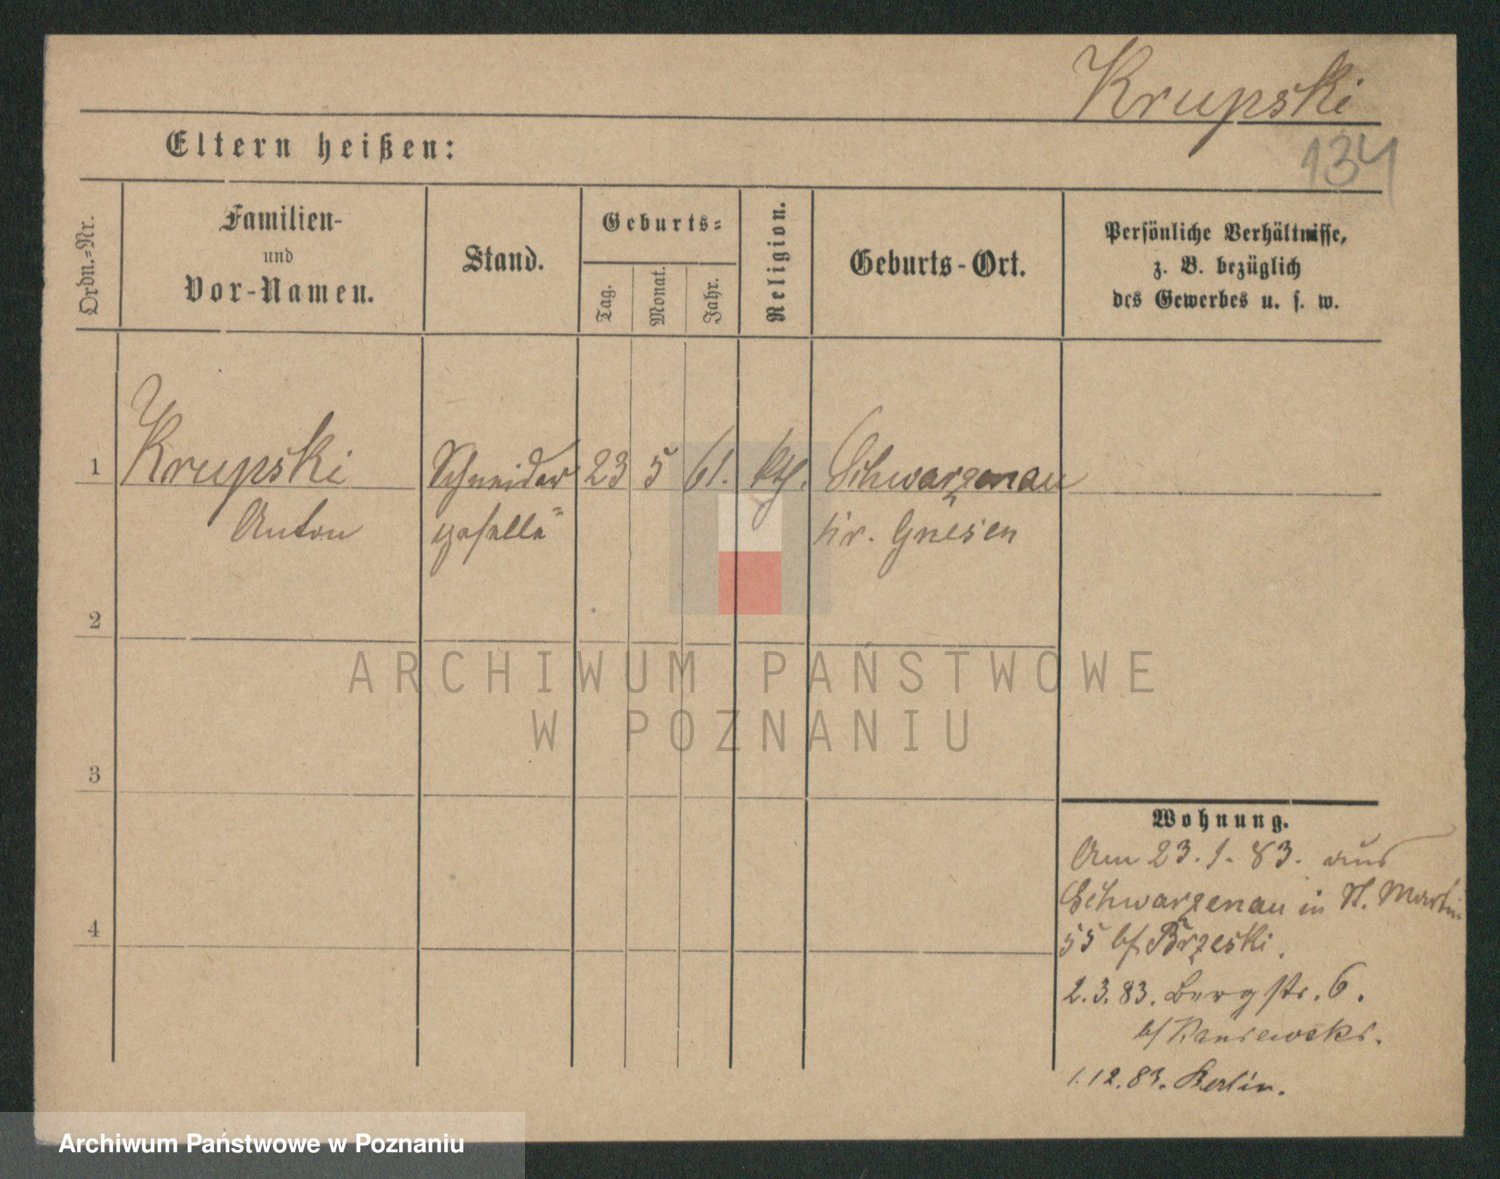 Krupski
134
Eltern heißen:
Ordn.=Nr.
Familien-
und
Vor-Namen.
Stand.
Geburts=
Tag.
Monat.
Jahr.
Religion.
Geburts-Ort.
Persönliche Verhältnisse,
z. B. bezüglich
des Gewerbes u. s. w.
1
Krupski
Anton
Schneider
geselle
23
5
61.
kth.
Schwarzenau
Kr. Gnesen
2
3
4
ARCHIWUM PAŃSTWOWE
W POZNANIU
Wohnung.
Am 23.1.83. aus
Schwarzenau in St. Martin
55 b/ Brzeski.
2.3.83. Bergstr. 6.
b/
1.12.83. Berlin.
Archiwum Państwowe w Poznaniu